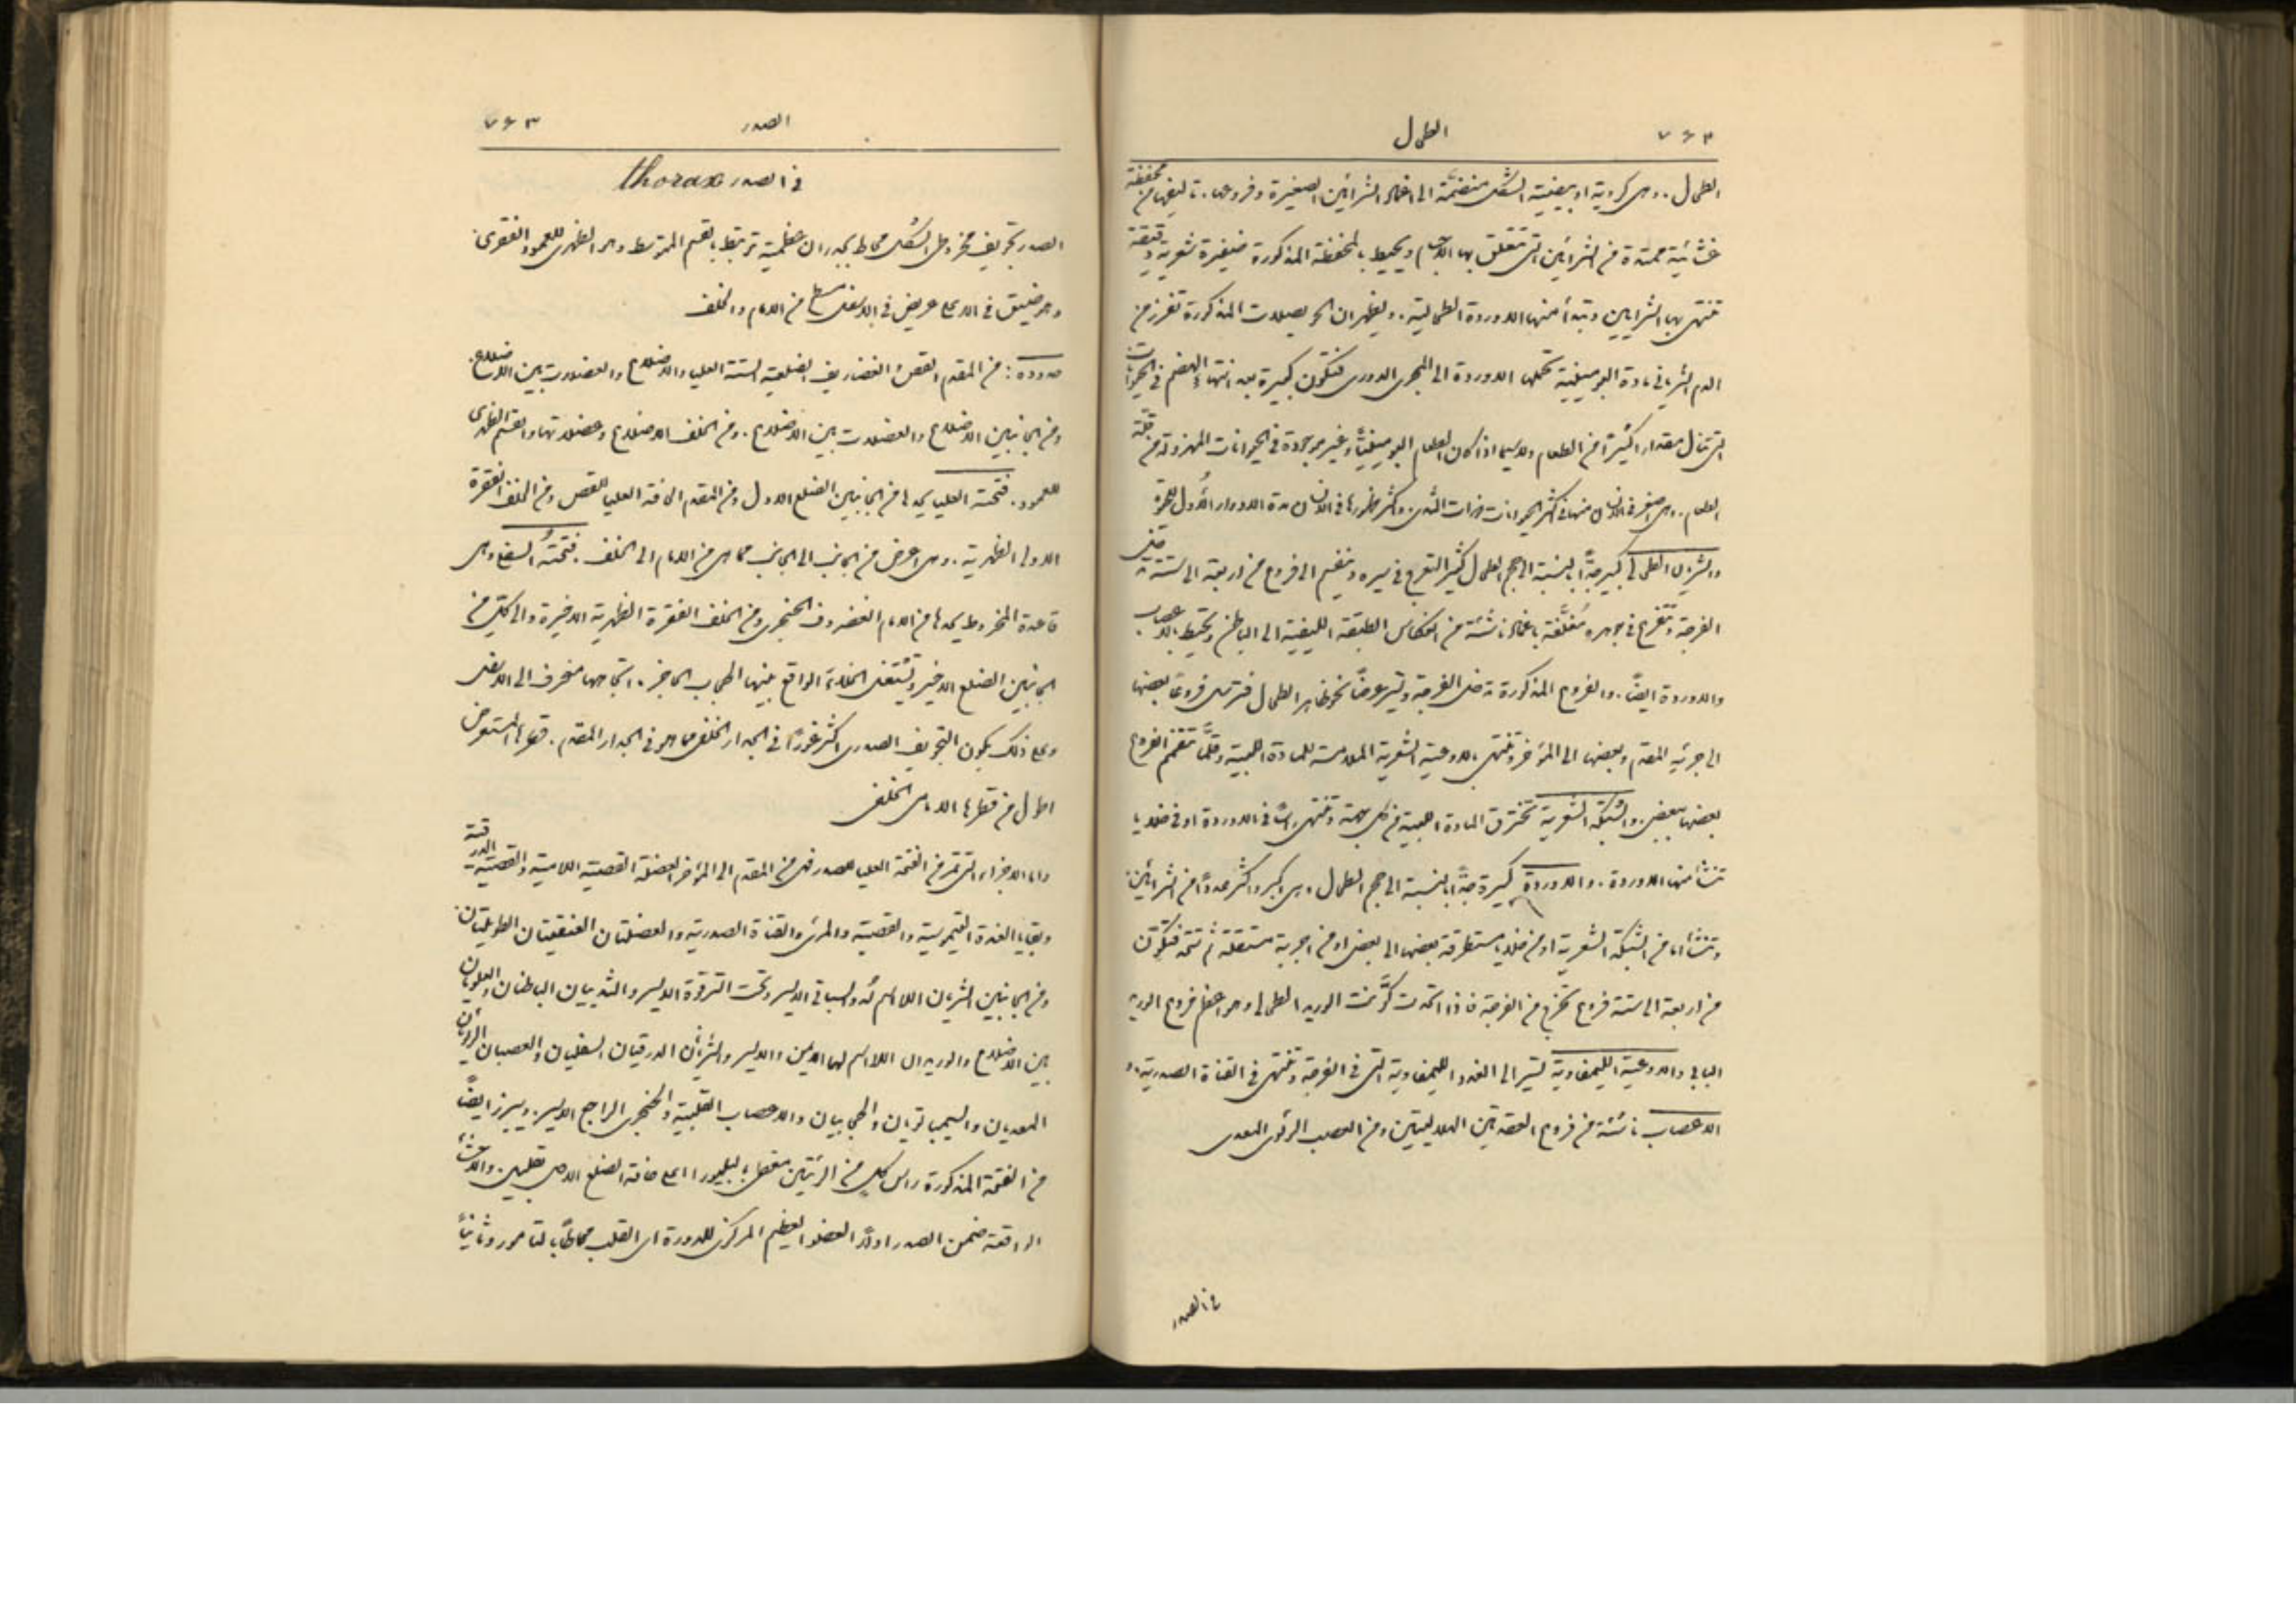 الطحال
الطحال. وهي كروية او بيضية الشكل منضمة الى اغماد الشرايين الصغيرة وفروعها. تاليفها من محفظة
غشائية ممتدة من الشرايين التي تتعلق بها الاجسام ويحيط بالمحفظة المذكورة ضفيرة شعرية دقيقة
تنتهي بها الشرايين وتبدأ منها الاوردة الطحالية. ويظهر ان الحويصلات المذكورة تفرز من
الدم الشرياني مادة البومينية تحملها الاوردة الى المجرى الدوري فتكون كبيرة بعد انتهاء الهضم في الحيوانات
التي تناول مقدارا كثيرا من الطعام ولاسيما اذا كان الطعام البومينيا وغير موجودة في الحيوانات المهزولة من قلة
الطعام. وهي اصغر في الانسان منها في اكثر الحيوانات ذوات الثدي واكثر ظهورها في الانسان مدة الادوار الاول للعمر
والشريان الطحالي كبير جدا بالنسبة الى حجم الطحال كثير التعرج في سيره وينقسم الى فروع من اربعة الى ستة تدخل
الفرجة وتتفرع في جوهره مغلفة باغماد ناشئة من انعكاس الطبقة الليفية الى الباطن وتحيط بالاعصاب
والاوردة ايضا. والفروع المذكورة تدخل الفرجة وتسير عرضا نحو ظاهر الطحال فترسل فروعا بعضها
الى جزئه المقدم وبعضها الى المؤخر وتنتهي بالاوعية الشعرية الملامسة للمادة اللبية وقلما تتفمم الفروع
بعضها ببعض. والشبكة الشعرية تخترق المادة اللبية من كل جهة وتنتهي راسا في الاوردة او في خلايا
تنشأ منها الاوردة. والاوردة كبيرة جدا بالنسبة الى حجم الطحال وهي اكبر واكثر عددا من الشرايين
وتنشأ اما من الشبكة الشعرية او من خلايا مستطرقة بعضها الى بعض او من اجربة مستقلة ثم تتحد فتكون
من اربعة الى ستة فروع تخرج من الفرجة فاذا اتحدت كونت الوريد الطحالي وهو اعظم فروع الوريد
البابي والاوعية الليمفاوية تسير الى الغدد الليمفاوية التي في الفرجة وتنتهي في القناة الصدرية. و
الاعصاب ناشئة من فروع العقدتين الهلاليتين ومن العصب الرئوي المعدي
في الصدر
الصدر
في الصدر thorax
الصدر تجويف مخروطي الشكل محاط بجدران عظمية ترتبط بالقسم المتوسط وهو الظهري للعمود الفقري
وهو ضيق في الاعلى عريض في الاسفل مسطح من الامام والخلف
حدوده: من المقدم القص والغضاريف الضلعية الستة العليا والاضلاع والعضلات بين الاضلاع.
ومن الجانبين الاضلاع والعضلات بين الاضلاع. ومن الخلف الاضلاع وعضلاتها والقسم الظهري
للعمود. فتحته العليا يحدها من الجانبين الضلع الاول ومن المقدم الحافة العليا للقص ومن الخلف الفقرة
الاولى الظهرية. وهي اعرض من الجانب الى الجانب مما هي من الامام الى الخلف. فتحته السفلى وهي
قاعدة المخروط يحدها من الامام الغضروف الخنجري ومن الخلف الفقرة الظهرية الاخيرة والى كل من
الجانبين الضلع الاخير وتشغل الخلاء الواقع بينها الحجاب الحاجز. اتجاهها منحرف الى الاسفل
وعلى ذلك يكون التجويف الصدري اكثر غورا في الجدار الخلفي مما هو في الجدار المقدم. قطرها المستعرض
اطول من قطرها الامامي الخلفي
واما الاجزاء التي تمر في الفتحة العليا للصدر فهي من المقدم الى المؤخر العضلة القصية اللامية والقصية الدرقية
وبقايا الغدة التيموسية والقصبة والمريء والقناة الصدرية والعضلتان العنقيتان الطويلتان.
ومن الجانبين الشريان اللااسم له والسباتي الايسر وتحت الترقوة الايسر والثدييان الباطنان والعلويان
بين الاضلاع والوريدان اللااسم لهما الايمن والايسر والشريانان الدرقيان السفليان والعصبان الرئويان
المعديان والسيمباتويان والحجابيان والاعصاب القلبية والحنجري الراجع الايسر. ويبرز ايضا
من الفتحة المذكورة راس كل من الرئتين مغطى بالبليورا اعلى حافة الضلع الاول بقليل. والاحشاء
الواقعة ضمن الصدر اولا العضو العظيم المركزي للدورة اي القلب محاطا بالتامور وثانيا